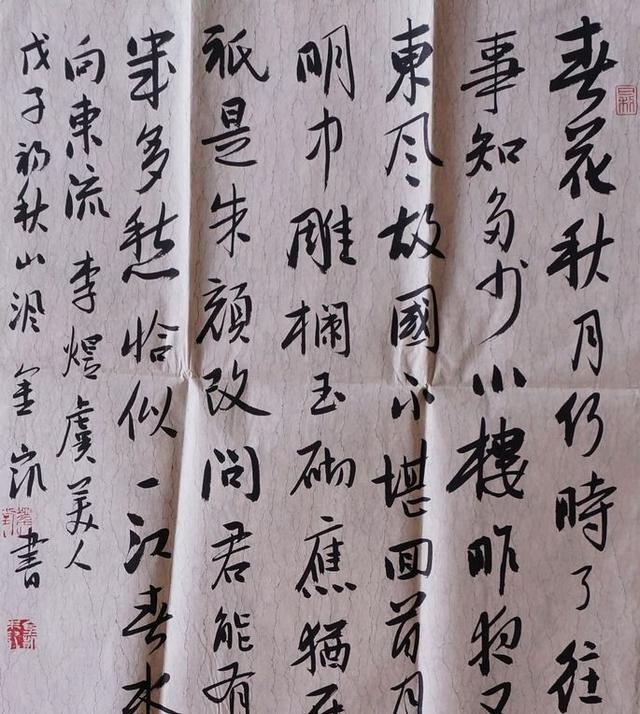 春花秋月何時了往
事知多少小樓昨夜又
東風故國不堪回首月
明中雕欄玉砌應猶在
祇是朱顏改問君能有
幾多愁恰似一江春水
向東流 李煜虞美人
戊子初秋山 金 書